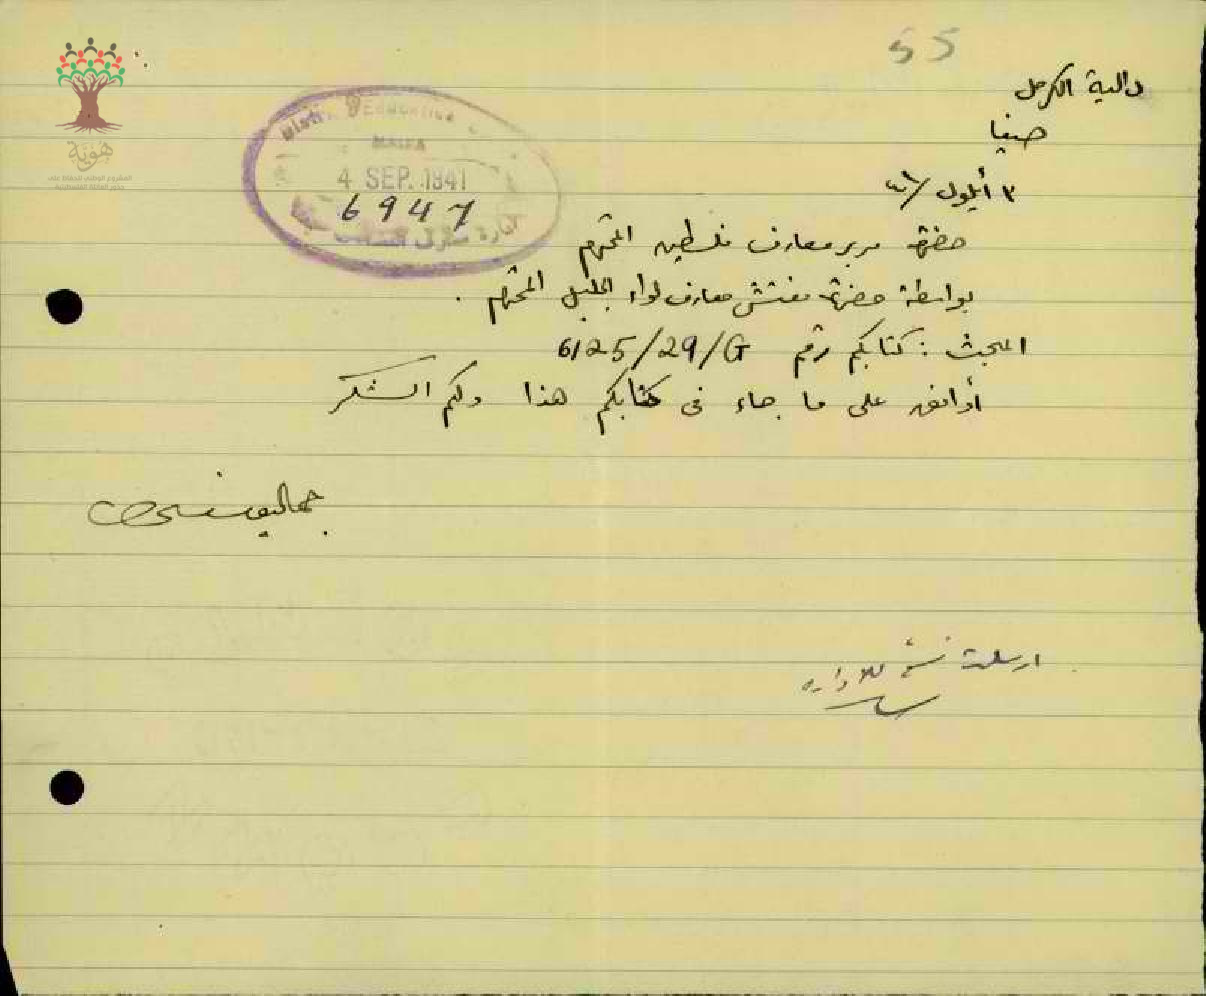 55
دالية الكرمل
حيفا
٣ أيلول /٤١
حضرة مدير معارف فلسطين المحترم
بواسطة حضرة مفتش معارف لواء الجليل المحترم .
المبحث : كتابكم رقم 6125/29/G
أوافق على ما جاء في كتابكم هذا ولكم الشكر
ارسلت نسخة للادارة
District Education
HAIFA
4 SEP. 1941
6947
هوية
المشروع الوطني للحفاظ على
جذور العائلة الفلسطينية